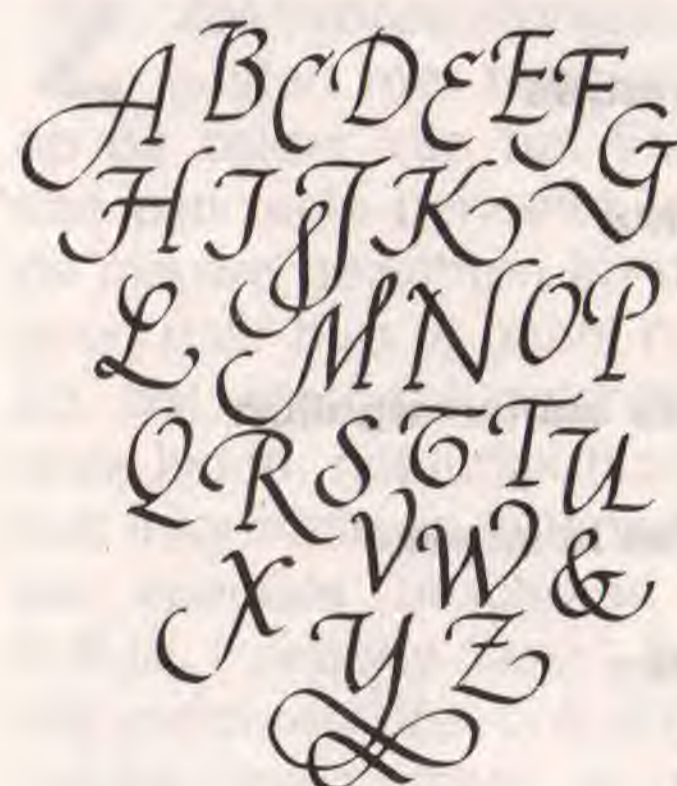 A B C D E E F G
H I J K
L M N O P
Q R S T T U
V W &
X Y Z